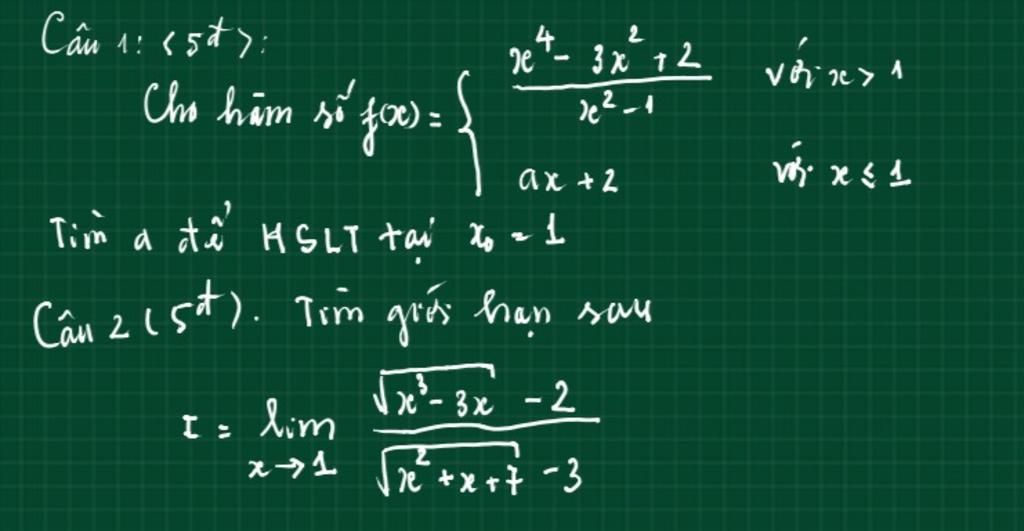 Câu 1: <5đ>:
Cho hàm số f(x) = { (x^4 - 3x^2 + 2)/(x^2 - 1) với x > 1
ax + 2 với x ≤ 1
Tìm a để HSLT tại x₀ = 1
Câu 2 (5đ). Tìm giới hạn sau
I = lim x→1 (√(x^3 - 3x) - 2)/(√(x^2 + x + 7) - 3)